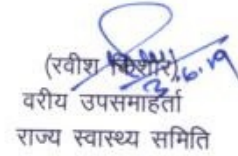 (रवीश किशोर)
3.6.19
वरीय उपसमाहर्ता
राज्य स्वास्थ्य समिति